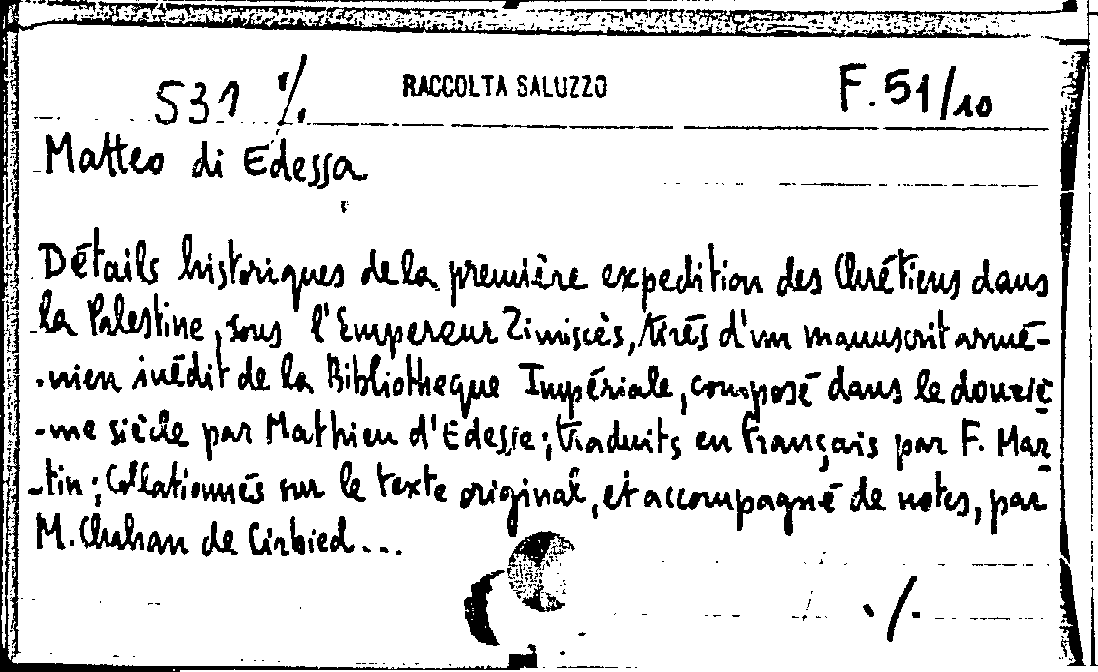 531 ·/. RACCOLTA SALUZZO F. 51/10
Matteo di Edessa
Détails historiques de la première expedition des Chrétiens dans
la Palestine, sous l'Empereur Zimiscès, tirés d'un manuscrit armé-
-nien inédit de la Bibliotheque Impériale, composé dans le douziè
-me siècle par Mathieu d'Edesse; traduits en français par F. Mar
-tin; Collationnés sur le texte original, et accompagné de notes, par
M. Chahan de Cirbied...
·/.